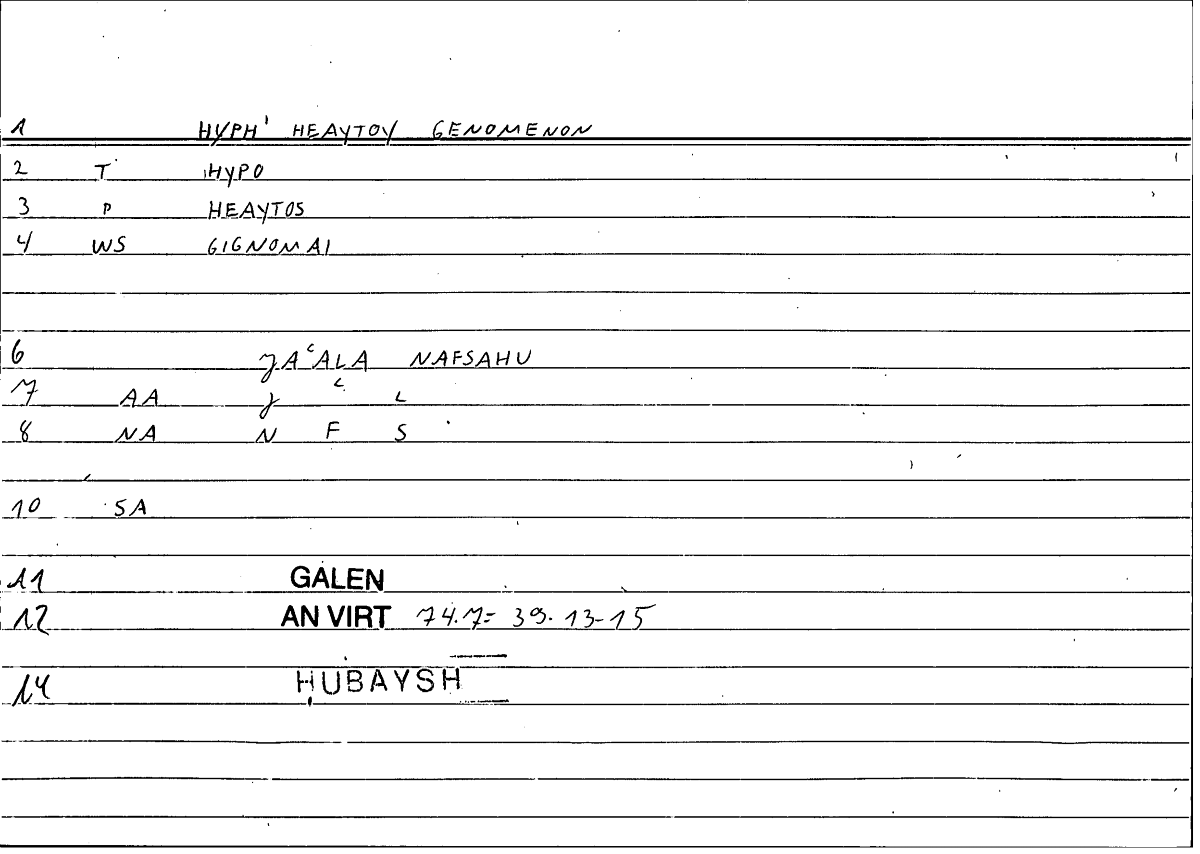 1 HYPH' HEAYTOY GENOMENON
2 T HYPO
3 P HEAYTOS
4 WS GIGNOMAI
6 ǦAʿALA NAFSAHU
7 AA Ǧ ʿ L
8 NA N F S
10 SA
11 GALEN
12 AN VIRT 74.7= 39.13-15
14 ḤUBAYSH